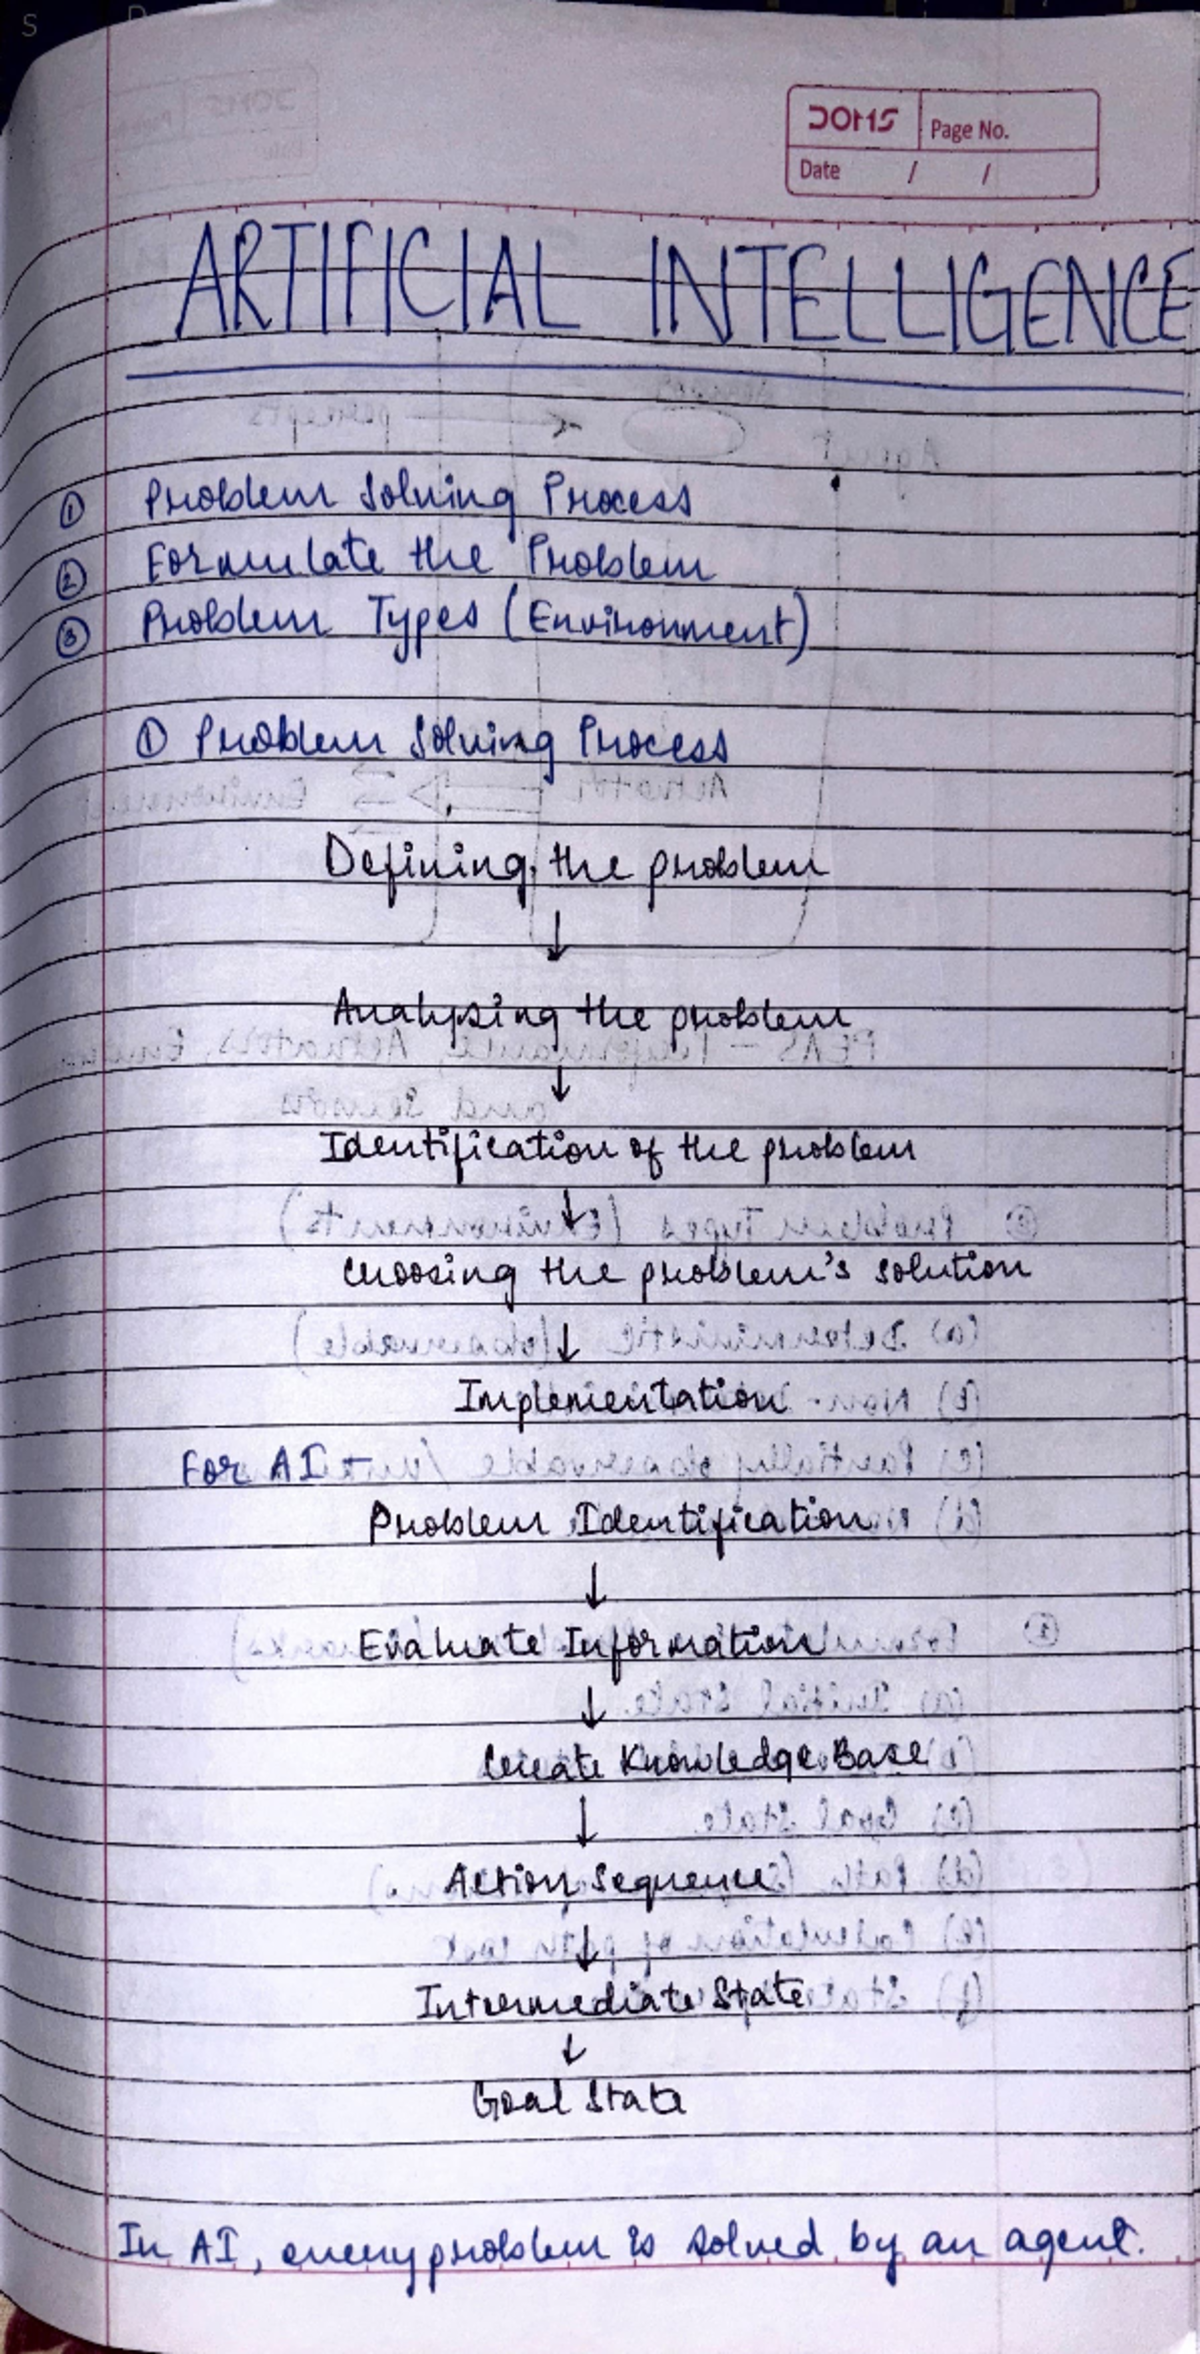 DOMS Page No.
Date / /
ARTIFICIAL INTELLIGENCE
① Problem Solving Process
② Formulate the Problem
③ Problem Types (Environment)
① Problem Solving Process
Defining the problem
↓
Analysing the problem
↓
Identification of the problem
↓
Choosing the problem's solution
↓
Implementation
For AI -
Problem Identification
↓
Evaluate Information
↓
Create Knowledge Base
↓
Action Sequence
↓
Intermediate State
↓
Goal State
In AI, every problem is solved by an agent.